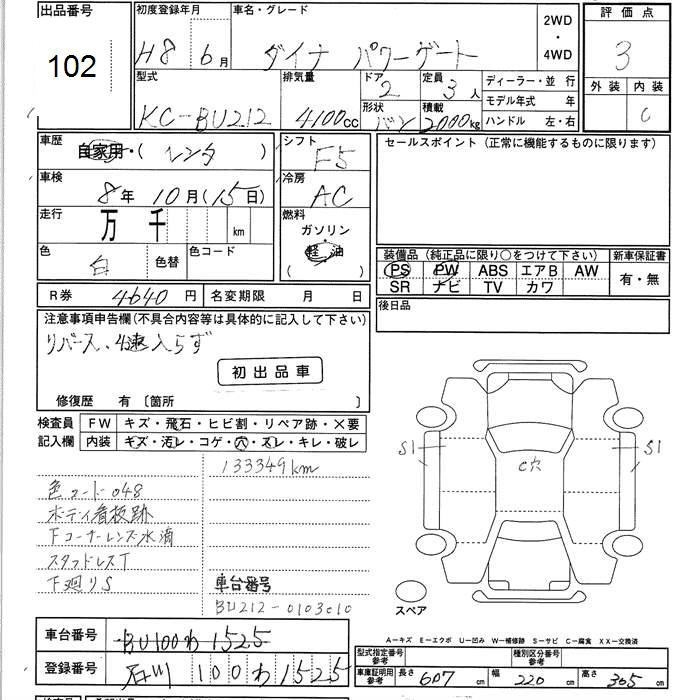 出品番号 初度登録年月 車名・グレード 2WD・4WD 評価点
102 H8年 6月 ダイナ パワーゲート 3
型式 排気量 ドア 定員 ディーラー・並 行 外装 内装
KC-BU212 4100cc 2 3人 モデル年式 年 C
形状 積載 ハンドル 左・右
バン 2000kg
車歴 自家用・( レンタ ) シフト F5 セールスポイント (正常に機能するものに限ります)
車検 8年 10月(15日) 冷房 AC
走行 万 千 km 燃料 ガソリン
色 白 色替 色コード 軽油
( )
装備品 (純正品に限り○をつけて下さい) 新車保証書
PS PW ABS エアB AW 有・無
SR ナビ TV カワ
R券 4640円 名変期限 月 日 後日品
注意事項申告欄(不具合内容等は具体的に記入して下さい)
リバース、4速入らず
初出品車
修復歴 有 〔箇所 〕
検査員 FW キズ・飛石・ヒビ割・リペア跡・×要
記入欄 内装 キズ・汚レ・コゲ・穴・スレ・キレ・破レ
133349km
S1 C穴 S1
色コード 048
ボディ看板跡
Fコーナーレンズ水滴
スタッドレスT
下廻りS 車台番号
BU212-0103010
スペア
A-キズ E-エクボ U-凹み W-補修跡 S-サビ C-腐食 XX-交換済
車台番号 BU100わ1525
登録番号 石川 100わ1525
型式指定番号 参考 種別区分番号 参考
車庫証明用 参考 長さ 607cm 幅 220cm 高さ 305cm